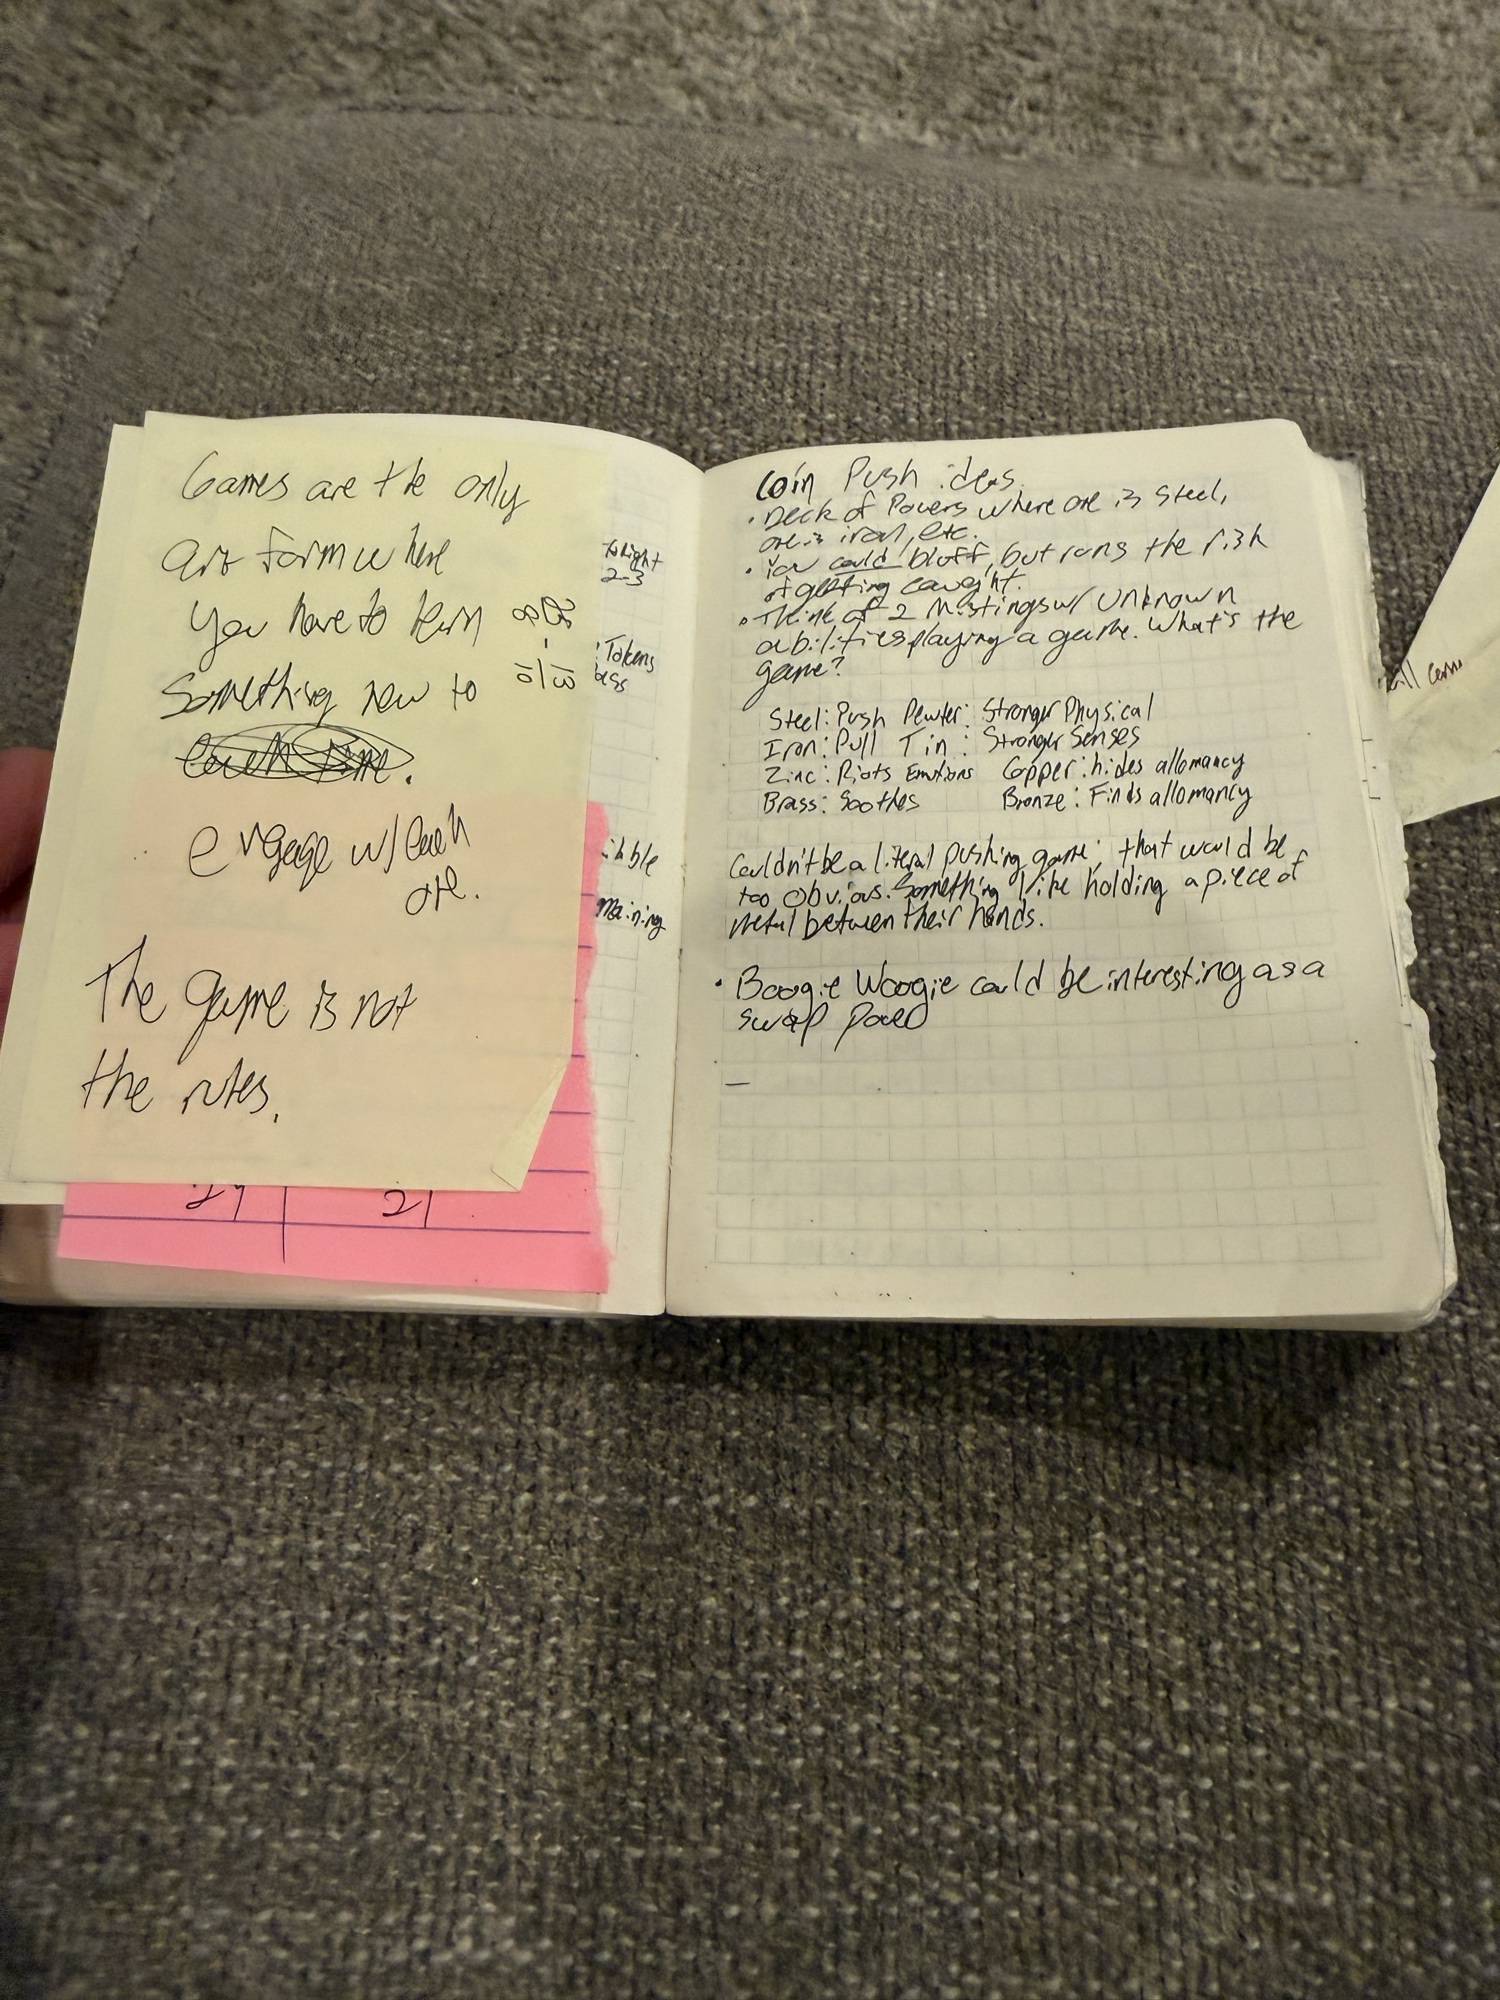 Games are the only
art form where
you have to learn
something new to
each time.
engage w/ each
one.
The game is not
the rules.
29 21
to right
2-3
Tokens
maining
Coin Push ideas
• Deck of Powers where one is Steel,
one is iron, etc.
• You could bluff, but runs the risk
of getting caught.
• Think of 2 Mistings w/ unknown
abilities playing a game. What's the
game?
Steel: Push Pewter: Stronger Physical
Iron: Pull Tin: Stronger Senses
Zinc: Riots Emotions Copper: hides allomancy
Brass: Soothes Bronze: Finds allomancy
Couldn't be a literal pushing game; that would be
too obvious. Something like holding a piece of
metal between their hands.
• Boogie Woogie could be interesting as a
swap power
—